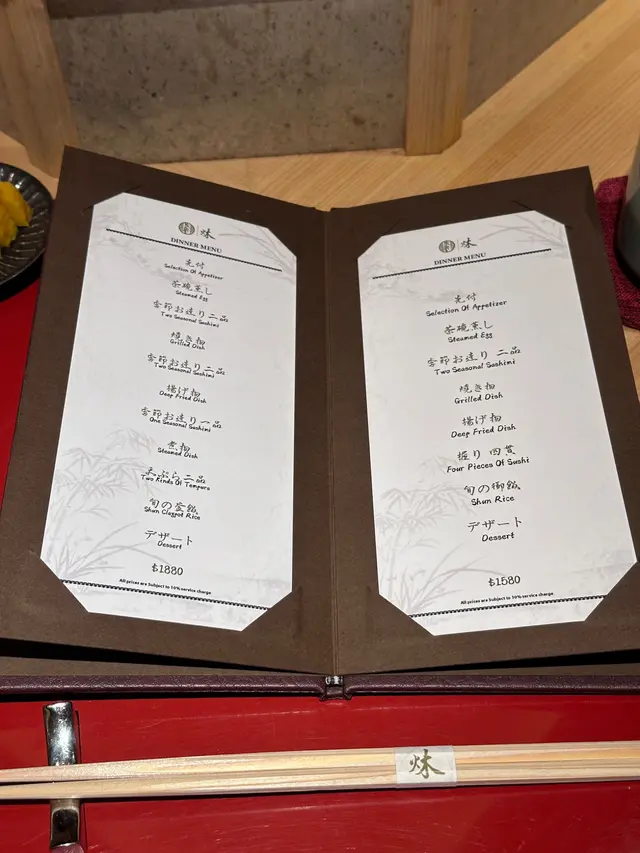 DINNER MENU
先付
Selection Of Appetizer
茶碗蒸し
Steamed Egg
季節お造り二品
Two Seasonal Sashimi
焼き物
Grilled Dish
季節お造り二品
Two Seasonal Sashimi
揚げ物
Deep Fried Dish
季節お造り一品
One Seasonal Sashimi
煮物
Steamed Dish
天ぷら二品
Two Kinds Of Tempura
旬の釜飯
Shun Claypot Rice
デザート
Dessert
$1880
All prices are Subject to 10% service charge
DINNER MENU
先付
Selection Of Appetizer
茶碗蒸し
Steamed Egg
季節お造り 二品
Two Seasonal Sashimi
焼き物
Grilled Dish
揚げ物
Deep Fried Dish
握り 四貫
Four Pieces Of Sushi
旬の御飯
Shun Rice
デザート
Dessert
$1580
All prices are Subject to 10% service charge